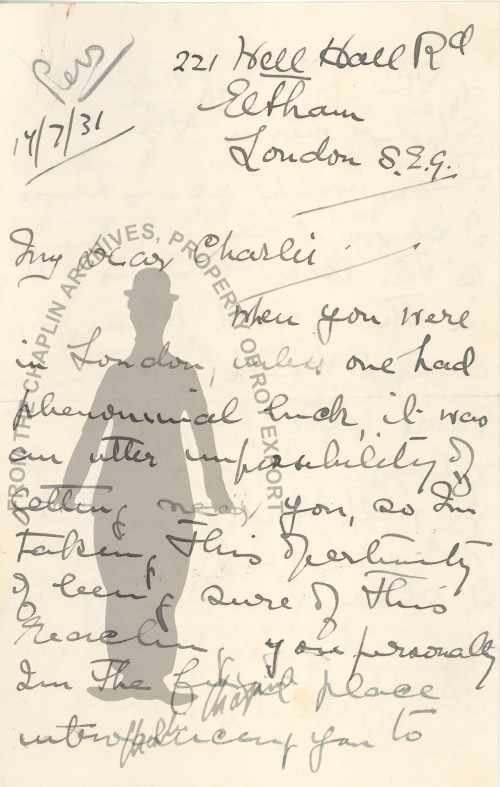 Pers
14/7/31
221 Well Hall Rd
Eltham
London S.E.9.
My dear Charlie
When you were
in London, unless one had
phenominal luck, it was
an utter impossibility of
getting near you, so I'm
taking this opertunity
of being sure of this
reaching you personally
In the first place
introducing you to
FROM THE CHAPLIN ARCHIVES, PROPERTY OF ROY EXPORT
Charlie Chaplin